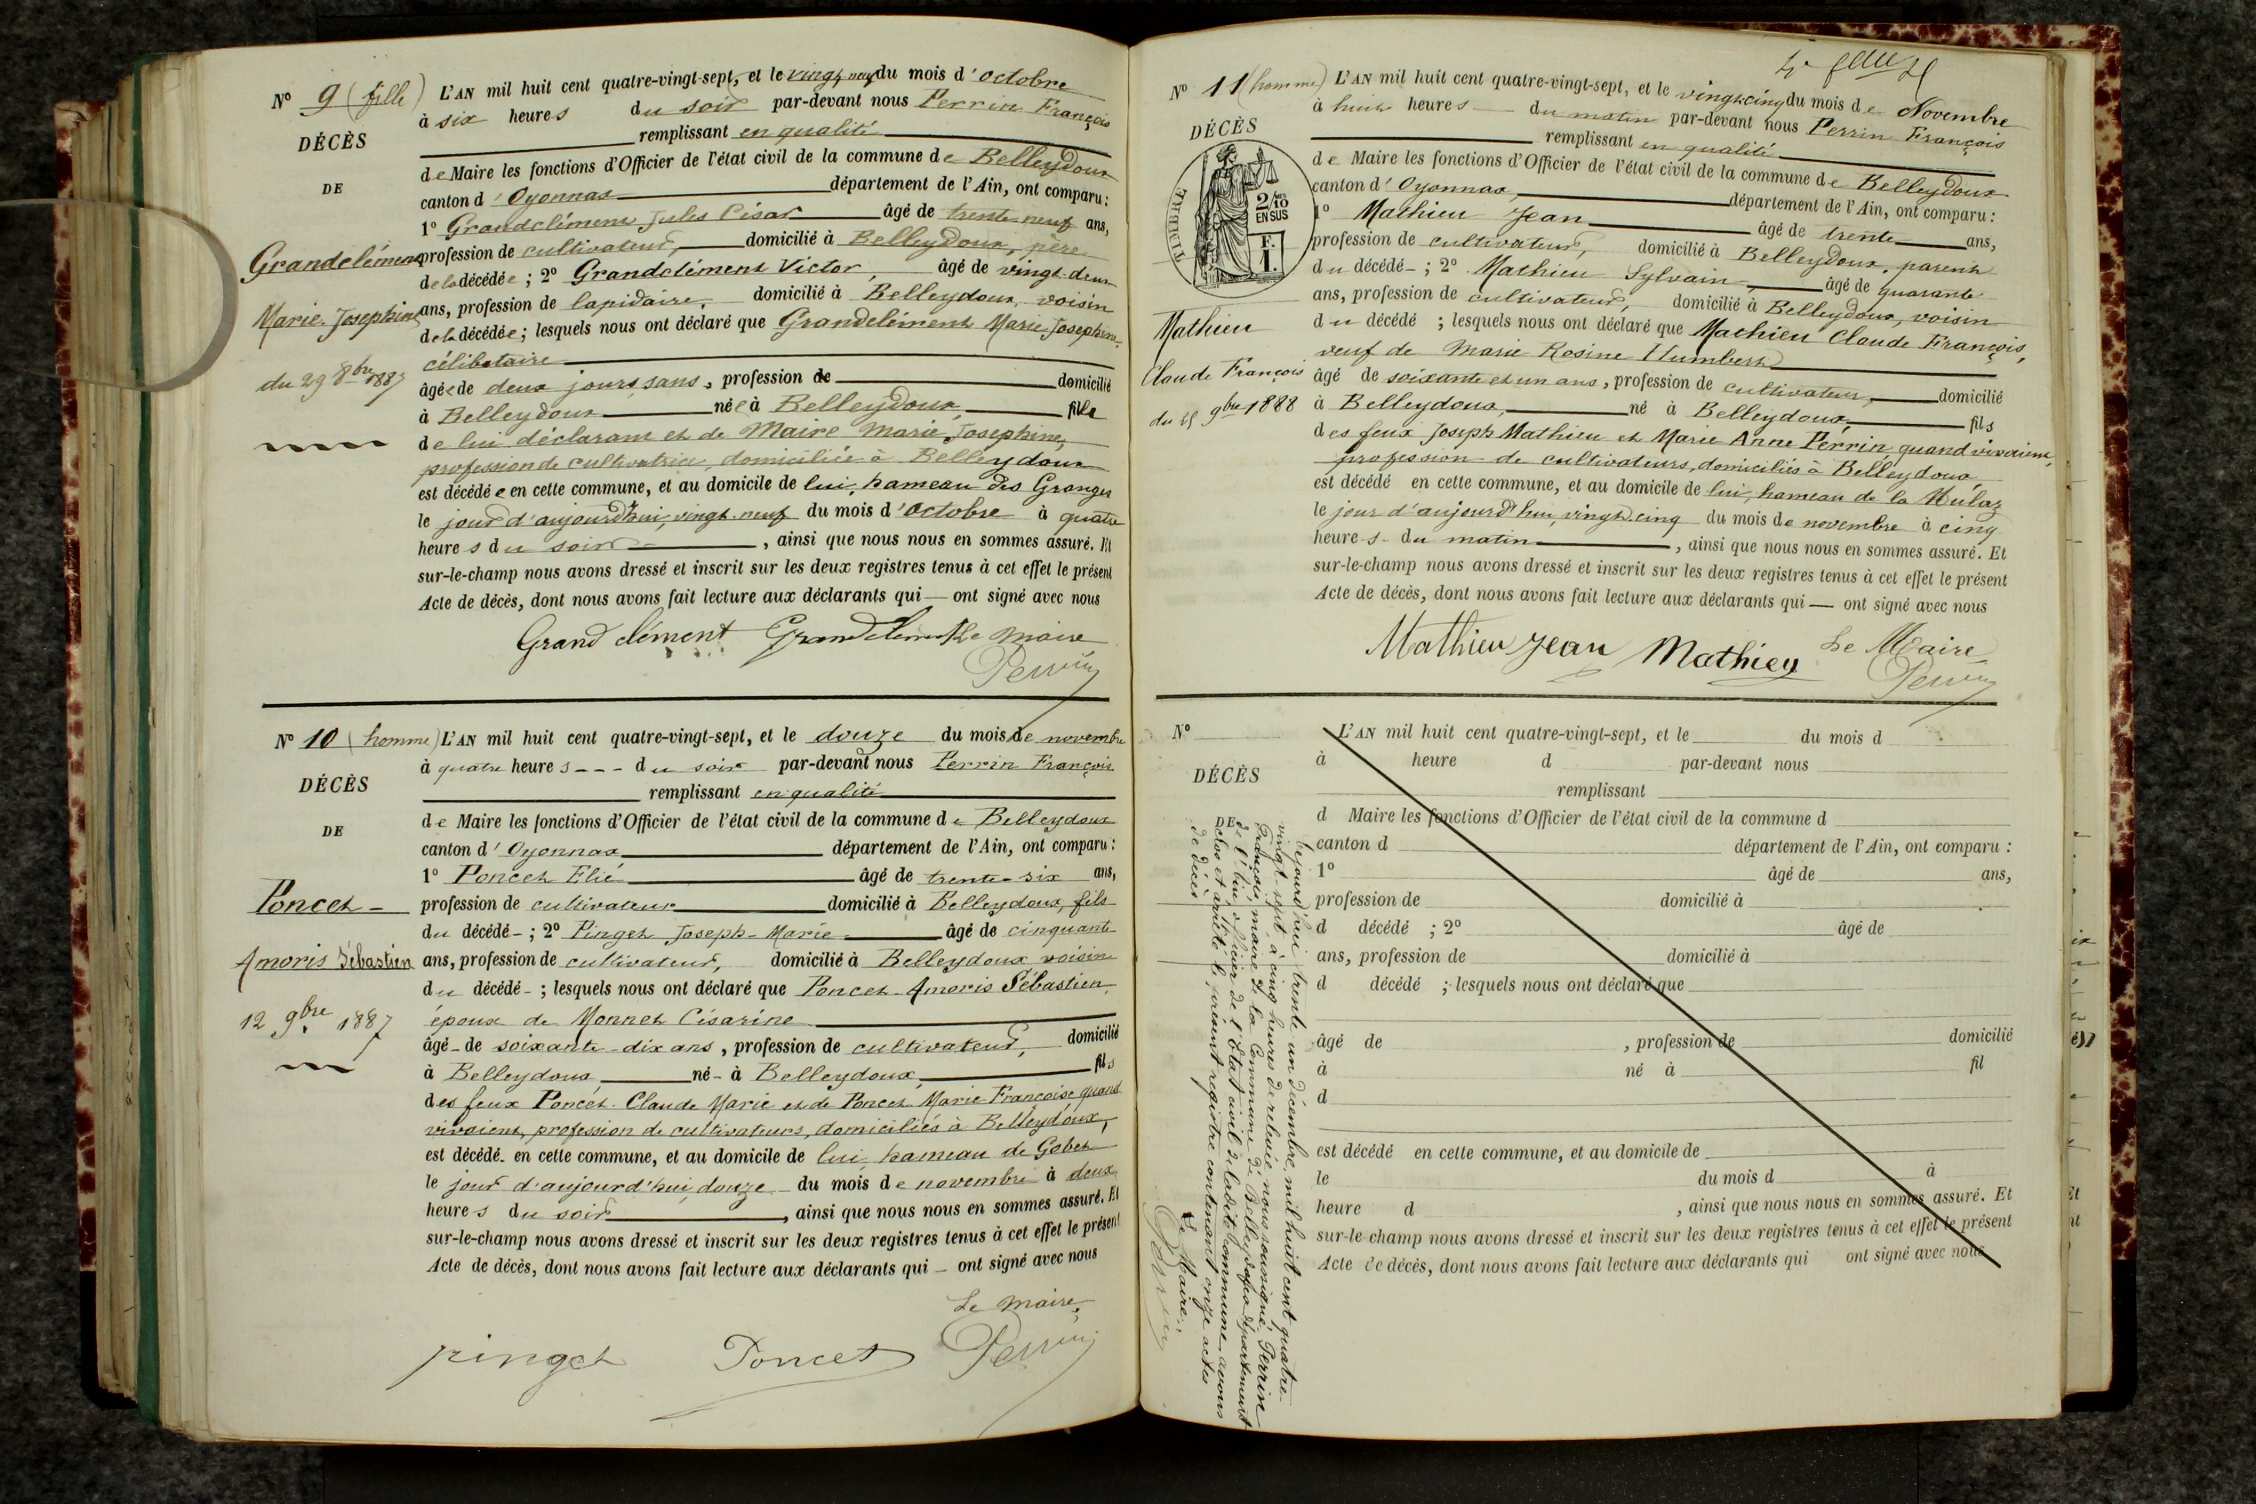 N° 9 (fille)
DÉCÈS
DE
Grandclément
Marie Josephine
du 29 8bre 1887
L'AN mil huit cent quatre-vingt-sept, et le vingt neuf du mois d'octobre
à six heures du soir par-devant nous Perrin François
remplissant en qualité
de Maire les fonctions d'Officier de l'état civil de la commune de Belleydoux
canton d'Oyonnax département de l'Ain, ont comparu :
1° Grandclément Jules César âgé de trente neuf ans,
profession de cultivateur, domicilié à Belleydoux, père
de la décédée ; 2° Grandclément Victor, âgé de vingt-deux
ans, profession de lapidaire, domicilié à Belleydoux, voisin
de la décédée ; lesquels nous ont déclaré que Grandclément Marie Josephine
célibataire
âgée de deux jours, sans, profession de domicilié
à Belleydoux née à Belleydoux fille
de lui déclarant et de Maire Marie Josephine,
profession de cultivatrice, domiciliée à Belleydoux
est décédée en cette commune, et au domicile de lui, hameau des Granges
le jour d'aujourd'hui, vingt neuf du mois d'octobre à quatre
heures du soir, ainsi que nous nous en sommes assuré. Et
sur-le-champ nous avons dressé et inscrit sur les deux registres tenus à cet effet le présent
Acte de décès, dont nous avons fait lecture aux déclarants qui ont signé avec nous
Grand clément Grandclément Le Maire
Perrin
N° 10 (homme)
DÉCÈS
DE
Poncet
Amoris Sébastien
12 9bre 1887
L'AN mil huit cent quatre-vingt-sept, et le douze du mois de novembre
à quatre heures du soir par-devant nous Perrin François
remplissant en qualité
de Maire les fonctions d'Officier de l'état civil de la commune de Belleydoux
canton d'Oyonnax département de l'Ain, ont comparu :
1° Poncet Élie âgé de trente-six ans,
profession de cultivateur domicilié à Belleydoux, fils
du décédé ; 2° Pinget Joseph-Marie âgé de cinquante
ans, profession de cultivateur, domicilié à Belleydoux voisin
du décédé ; lesquels nous ont déclaré que Poncet Amoris Sébastien,
époux de Monnet Césarine
âgé de soixante-dix ans, profession de cultivateur, domicilié
à Belleydoux né à Belleydoux, fils
des feux Poncet Claude Marie et de Poncet Marie Françoise quand
vivaient, profession de cultivateurs, domiciliés à Belleydoux,
est décédé en cette commune, et au domicile de lui hameau de Gobet
le jour d'aujourd'hui, douze du mois de novembre à deux
heures du soir, ainsi que nous nous en sommes assuré. Et
sur-le-champ nous avons dressé et inscrit sur les deux registres tenus à cet effet le présent
Acte de décès, dont nous avons fait lecture aux déclarants qui ont signé avec nous
Le Maire,
pinget Poncet Perrin
N° 11 (homme)
DÉCÈS
TIMBRE
2/10
EN SUS
F.
1.
Mathieu
Claude François
du 25 9bre 1888
L'AN mil huit cent quatre-vingt-sept, et le vingt cinq du mois de Novembre
à huit heures du matin par-devant nous Perrin François
remplissant en qualité
de Maire les fonctions d'Officier de l'état civil de la commune de Belleydoux
canton d'Oyonnax, département de l'Ain, ont comparu :
1° Mathieu Jean âgé de trente ans,
profession de cultivateur, domicilié à Belleydoux, parent
du décédé ; 2° Mathieu Sylvain, âgé de quarante
ans, profession de cultivateur, domicilié à Belleydoux, voisin
du décédé ; lesquels nous ont déclaré que Mathieu Claude François,
veuf de Marie Rosine Humbert
âgé de soixante et un ans, profession de cultivateur, domicilié
à Belleydoux, né à Belleydoux, fils
des feux Joseph Mathieu et Marie Anne Perrin quand vivaient,
profession de cultivateurs, domiciliés à Belleydoux,
est décédé en cette commune, et au domicile de lui, hameau de la Mulaz
le jour d'aujourd'hui, vingt-cinq du mois de novembre à cinq
heures du matin, ainsi que nous nous en sommes assuré. Et
sur-le-champ nous avons dressé et inscrit sur les deux registres tenus à cet effet le présent
Acte de décès, dont nous avons fait lecture aux déclarants qui ont signé avec nous
Mathieu Jean Mathieu Le Maire
Perrin
N°
DÉCÈS
DE
L'AN mil huit cent quatre-vingt-sept, et le du mois d
à heure d par-devant nous
remplissant
d Maire les fonctions d'Officier de l'état civil de la commune d
canton d département de l'Ain, ont comparu :
1° âgé de ans,
profession de domicilié à
d décédé ; 2° âgé de
ans, profession de domicilié à
d décédé ; lesquels nous ont déclaré que
âgé de , profession de domicilié
à né à fil
d
est décédé en cette commune, et au domicile de
le du mois d à
heure d , ainsi que nous nous en sommes assuré. Et
sur-le-champ nous avons dressé et inscrit sur les deux registres tenus à cet effet le présent
Acte de décès, dont nous avons fait lecture aux déclarants qui ont signé avec nous
Cejourd'hui trente un décembre, mil huit cent quatre-
vingt-sept, à cinq heures de relevée, nous soussigné, Perrin
François, maire de la Commune de Belleydoux département
de l'Ain, officier de l'Etat civil de ladite commune avons
clos et arrêté le présent registre contenant onze actes
de décès
Le Maire,
Perrin